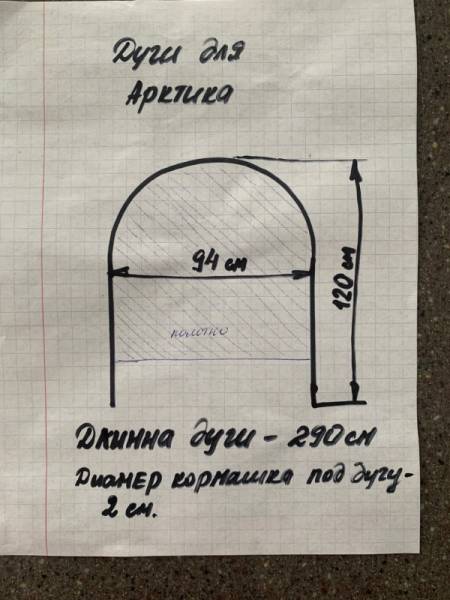 Дуги для
Арктика
94 см
120 см
полотно
Дкинна дуги - 290 см
Диамер кормашка под дугу-
2 см.